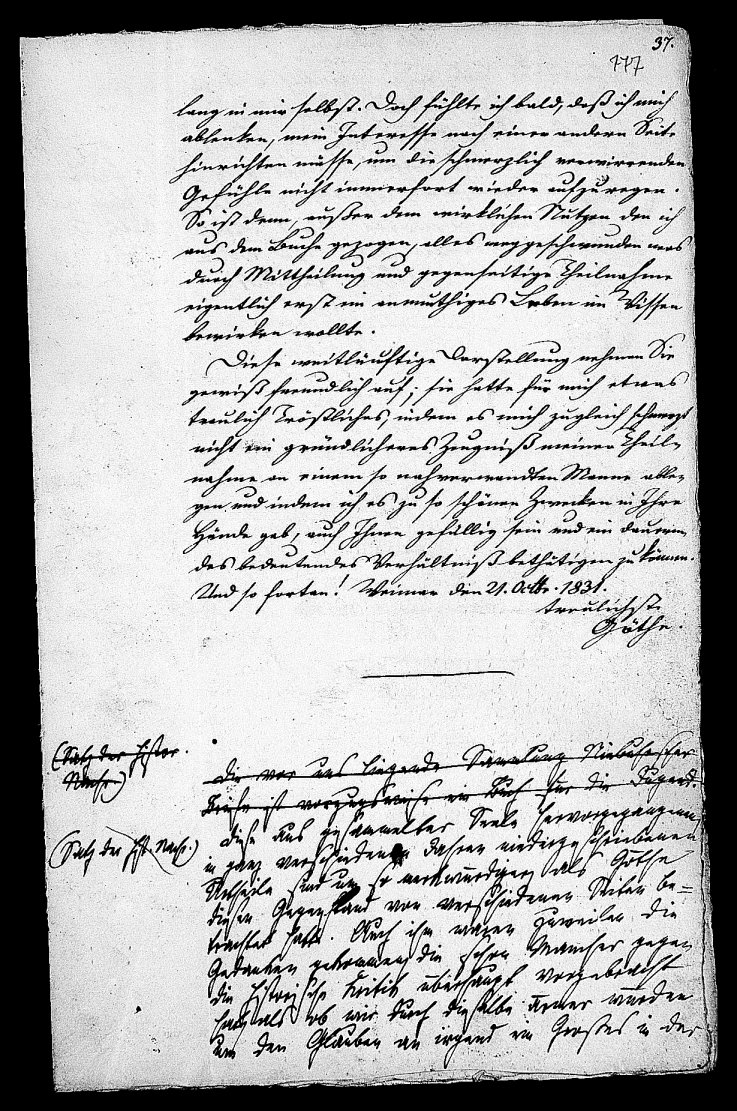 37.
177
lang in mir selbst. Doch fühlte ich bald, daß ich mich
ablenken, mein Interesse nach einer andern Seite
hinrichten müsse, um die schmerzlich verwirrenden
Gefühle nicht immerfort wieder aufzuregen.
So ist denn, außer dem wirklichen Nutzen den ich
aus dem Buche gezogen, alles weggeschwunden was
durch Mittheilung und gegenseitige Theilnahme
eigentlich erst ein anmuthiges Leben im Wissen
bewirken wollte.
Diese weitläuftige Darstellung nehmen Sie
gewiß freundlich auf; sie hatte für mich etwas
traulich Tröstliches, indem es mich zugleich schmerzt
nicht ein gründlicheres Zeugniß meiner Theil-
nahme an einem so nahverwandten Manne able-
gen und indem ich es zu so schönen Zwecken in Ihre
Hände gab, auch Ihnen gefällig sein und ein dauern-
des bedeutendes Verhältniß bethätigen zu können.
Und so fortan! Weimar den 21. Octbr. 1831.
treulichst
Göthe.
(Satz der histor.
Nachr)
Die vor uns liegende Sammlung Niebuhrscher
Briefe ist vorzugsweise ein Buch für die Jugend.
(Satz der hist. Nachr.)
Diese aus gesammelter Seele hervorgegangenen
in ganz verschiedenen Jahren niedergeschriebenen
Urtheile sind um so merkwürdiger als Göthe
diesen Gegenstand von verschiedenen Seiten be-
trachtet hatte. Auch ihm waren zuweilen die
Gedanken gekommen die schon Mancher gegen
die historische Kritik überhaupt vorgebracht
hat, als ob wir durch dieselbe ärmer würden
um den Glauben an irgend ein Großes in der